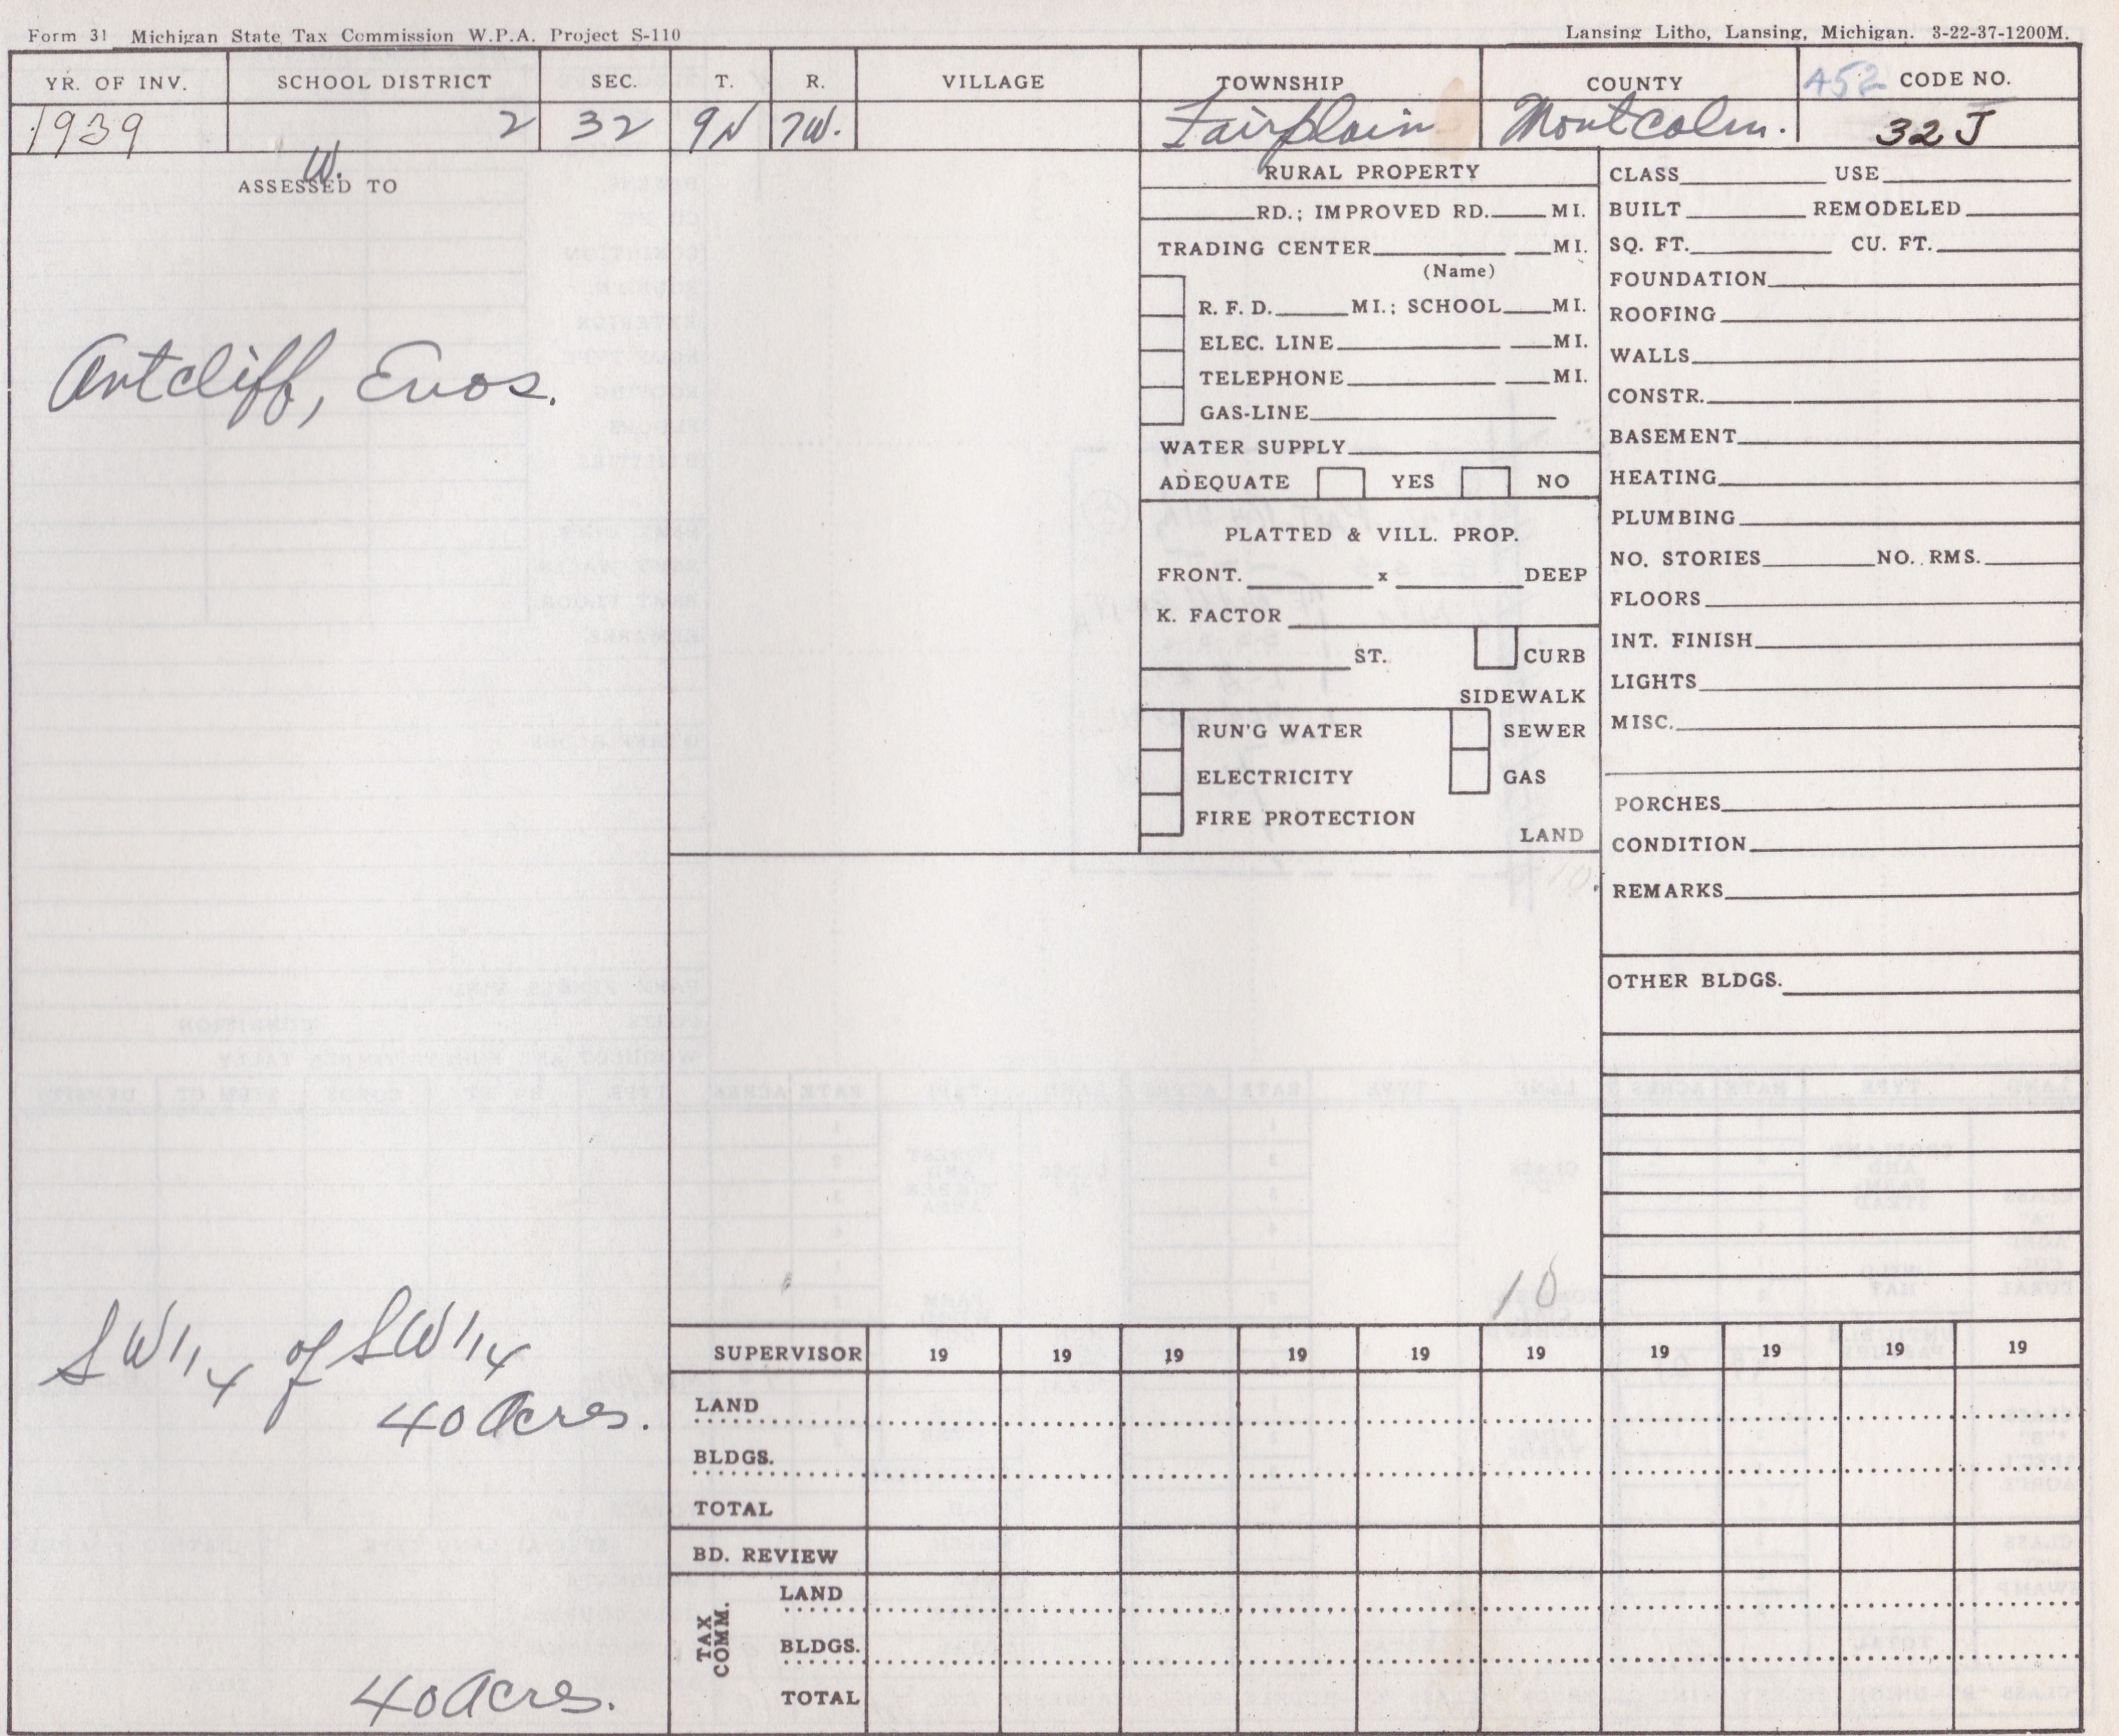 Form 31 Michigan State Tax Commission W.P.A. Project S-110
Lansing Litho, Lansing, Michigan. 3-22-37-1200M.
YR. OF INV. SCHOOL DISTRICT SEC. T. R. VILLAGE TOWNSHIP COUNTY 452 CODE NO.
1939 2 32 9N 7W. Fairplain Montcalm. 32 J
W.
ASSESSED TO
Antcliff, Enos.
SW 1/4 of SW 1/4
40 Acres.
40 Acres.
RURAL PROPERTY
RD.; IMPROVED RD. MI.
TRADING CENTER MI.
(Name)
R. F. D. MI.; SCHOOL MI.
ELEC. LINE MI.
TELEPHONE MI.
GAS-LINE
WATER SUPPLY
ADEQUATE YES NO
PLATTED & VILL. PROP.
FRONT. x DEEP
K. FACTOR
ST. CURB
SIDEWALK
RUN'G WATER SEWER
ELECTRICITY GAS
FIRE PROTECTION
LAND
CLASS USE
BUILT REMODELED
SQ. FT. CU. FT.
FOUNDATION
ROOFING
WALLS
CONSTR.
BASEMENT
HEATING
PLUMBING
NO. STORIES NO. RMS.
FLOORS
INT. FINISH
LIGHTS
MISC.
PORCHES
CONDITION
REMARKS
OTHER BLDGS.
10
SUPERVISOR 19 19 19 19 19 19 19 19 19 19
LAND
BLDGS.
TOTAL
BD. REVIEW
TAX COMM.
LAND
BLDGS.
TOTAL